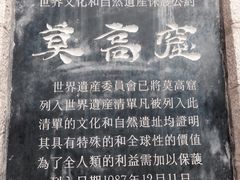 世界文化和自然遺產保護公約
莫高窟
世界遺產委員會已將莫高窟
列入世界遺產清單凡被列入此
清單的文化和自然遺址均證明
其具有特殊的和全球性的價值
為了全人類的利益需加以保護
列入日期1987年12月11日